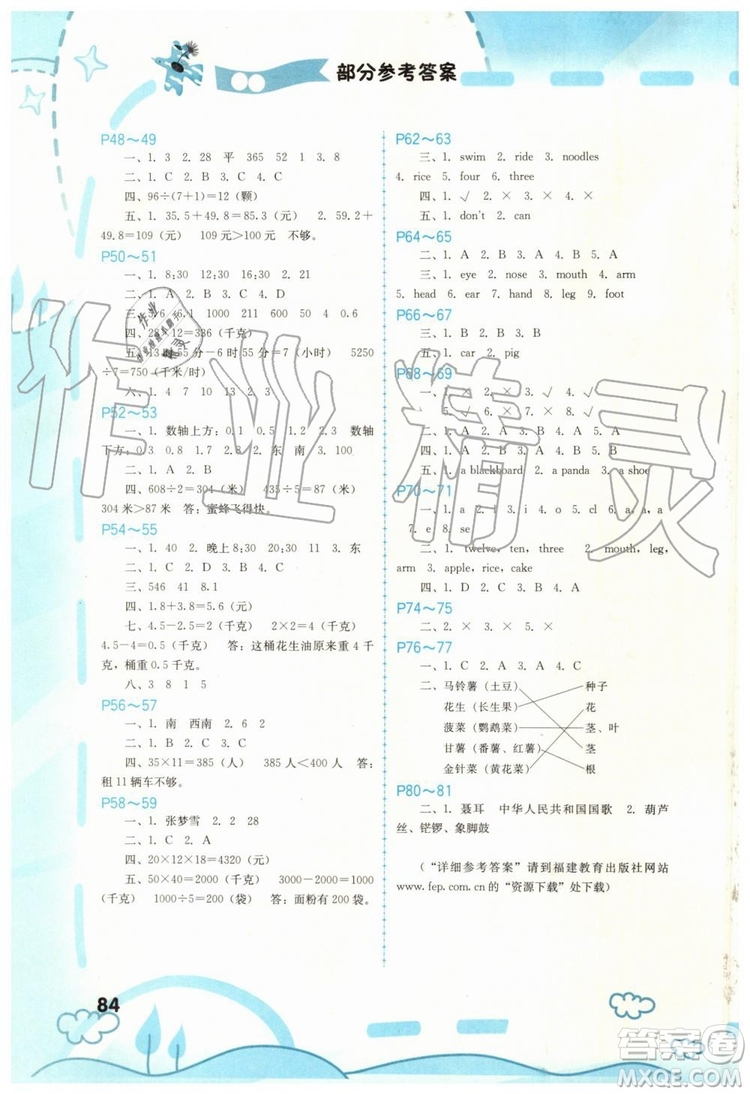 部分参考答案
P48～49
一、1. 3 2. 28 平 365 52 1 13 3. 8
二、1. B 2. A 3. C 4. C
四、96÷(7+1)=12（颗）
五、1. 35.5＋49.8＝85.3（元） 2. 59.2＋
49.8＝109（元） 109元＞100元 不够。
P50～51
一、1. 8:30 12:30 16:30 2. 4
二、1. A 2. C 3. C 4. D
三、376 6.1 1000 211 600 50 4 0.6
四、28×12＝336（千克）
五、13时55分－6时55分＝7（小时） 5250
÷7＝750（千米/时）
六、1. 4 7 10 13 2. 2 4 3
P52～53
一、1. 数轴上方：0.1 0.5 1.2 2.3 数轴
下方：0.3 0.8 1.7 2. 东 南 3. 100
二、1. A 2. B
四、608÷2＝304（米） 435÷5＝87（米）
304米＞87米 答：蜜蜂飞得快。
P54～55
一、1. 40 2. 晚上8:30 20:30 11 3. 东
三、546 41 8.1
四、1.8＋3.8＝5.6（元）
七、4.5－2.5＝2（千克） 2×2＝4（千克）
4.5－4＝0.5（千克） 答：这桶花生油原来重4千
克，桶重0.5千克。
八、3 8 1 5
P56～57
一、1. 南 西南 2. 6 2
二、1. B 2. B 3. C
四、35×11＝385（人） 385人＜400人 答：
租11辆车不够。
P58～59
一、1. 张梦雪 2. 2 28
二、1. C 2. A
四、20×12×18＝4320（元）
五、50×40＝2000（千克） 3000－2000＝1000
（千克） 1000÷5＝200（袋） 答：面粉有200袋。
P62～63
三、1. swim 2. ride 3. noodles
4. rice 5. four 6. three
四、1. √ 2. × 3. × 4. ×
五、1. don't 2. can
P64～65
二、1. A 2. B 3. B 4. A 5. A
三、1. eye 2. nose 3. mouth 4. arm
5. head 6. ear 7. hand 8. leg 9. foot
P66～67
三、1. B 2. B 3. A 4. B 5. A
五、1. cat 2. car 3. pig
P68～69
一、1. × 2. × 3. √ 4. √
5. √ 6. × 7. × 8. √
二、1. A 2. A 3. B 4. B
四、1. C 2. A 3. D 4. B
五、1. a blackboard 2. a panda 3. a shoe
P70～71
一、1. a 2. l 3. i 4. o 5. cl 6. a、a
7. e 8. se
二、1. twelve, ten, three 2. mouth, leg,
arm 3. apple, rice, cake
四、1. D 2. C 3. B 4. A
P74～75
二、2. × 3. × 5. ×
P76～77
一、1. C 2. A 3. C 4. A
二、马铃薯（土豆） 种子
花生（长生果） 花
菠菜（鹦鹉菜） 茎、叶
甘薯（番薯、红薯） 茎
金针菜（黄花菜） 根
P80～81
二、1. 聂耳 中华人民共和国国歌 2. 葫芦
丝、铓锣、象脚鼓
（“详细参考答案”请到福建教育出版社网站
www.fep.com.cn的“资源下载”处下载）
84
作业精灵
答案圈
MXQE.COM